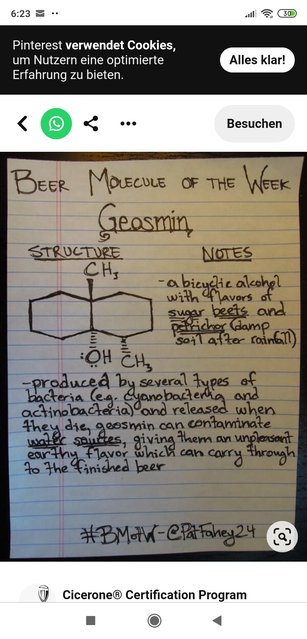 6:23
30
Pinterest verwendet Cookies,
um Nutzern eine optimierte
Erfahrung zu bieten.
Alles klar!
Besuchen
BEER MOLECULE OF THE WEEK
Geosmin
STRUCTURE
NOTES
CH3
-a bicyclic alcohol
with flavors of
sugar beets and
petrichor (damp
soil after rainfall)
:OH
CH3
-produced by several types of
bacteria (e.g. cyanobacteria and
actinobacteria) and released when
they die, geosmin can contaminate
water sources, giving them an unpleasant
earthy flavor which can carry through
to the finished beer
#BMotW-@PatFahey24
Cicerone® Certification Program